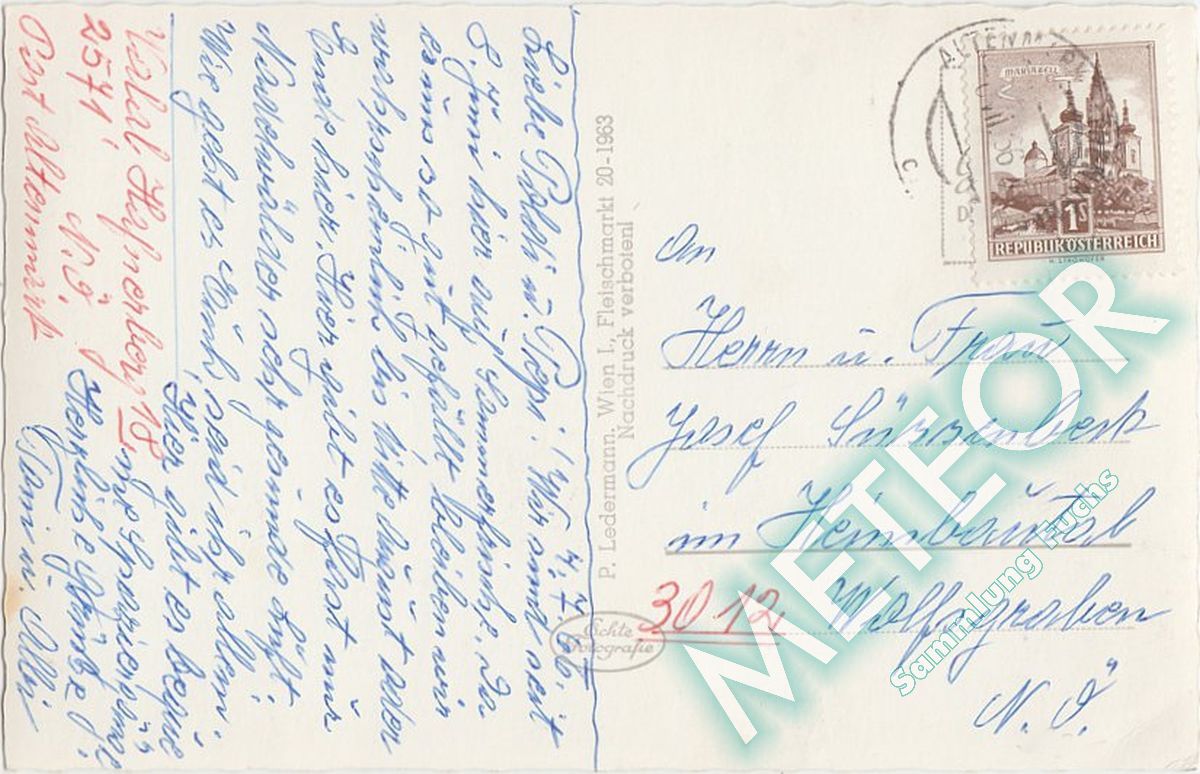 4.7.66.
Liebe Poldi u. Pepi! Wir sind seit
8. Juni hier auf Sommerfrische. Da
es uns so gut gefällt bleiben wir
wahrscheinlich bis Mitte August oder
Ende hier. Hier gibt es fast nur
Nadelwälder sehr gesunde Luft
Wie geht es Euch, seid ihr allein
Hier gibt es bequeme
Spazierwege
Herzliche Grüße
Toni u. Olli
Hafnerberg 18
2571 N.Ö.
Post Altenmarkt
P. Ledermann, Wien I., Fleischmarkt 20-1963
Nachdruck verboten!
Echte
Fotografie
ALTENMARKT
MARIAZELL
1 S
REPUBLIK ÖSTERREICH
An
Herrn u. Frau
Josef
im Heimbautal
3012 Wolfsgraben
N.Ö.
METEOR
Sammlung Fuchs